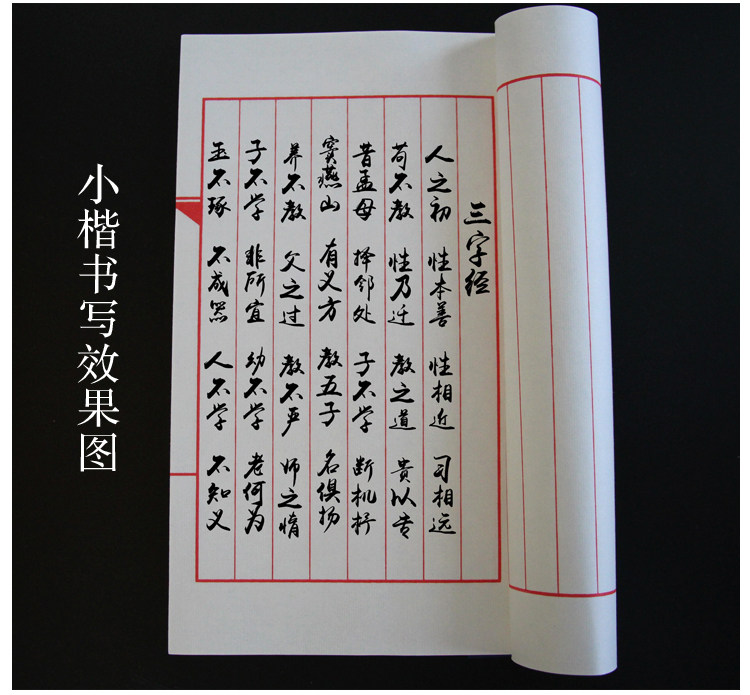 三字经
人之初 性本善 性相近 司相远
苟不教 性乃迁 教之道 贵以专
昔孟母 择邻处 子不学 断机杼
窦燕山 有义方 教五子 名俱扬
养不教 父之过 教不严 师之惰
子不学 非所宜 幼不学 老何为
玉不琢 不成器 人不学 不知义
小楷书写效果图